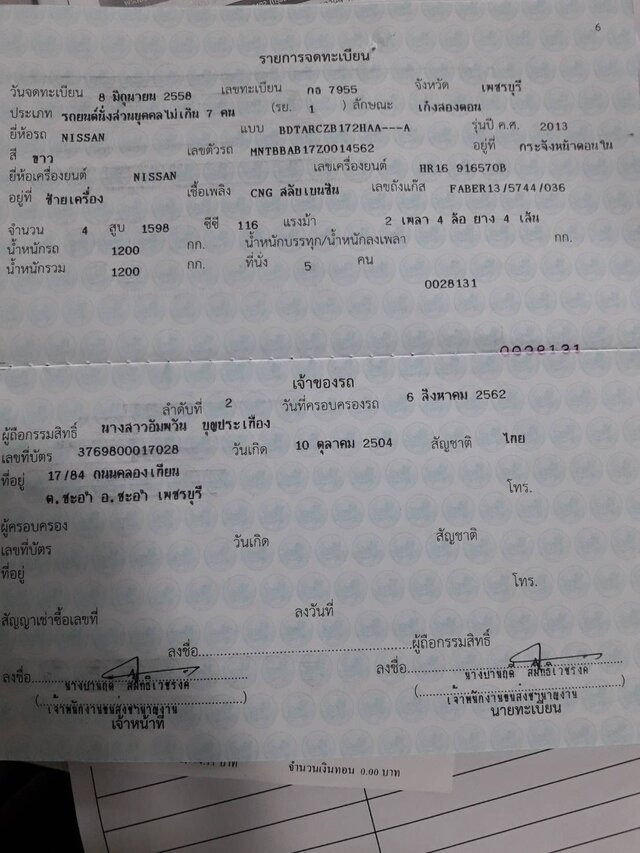 6
รายการจดทะเบียน
วันจดทะเบียน 8 มิถุนายน 2558 เลขทะเบียน กอ 7955 จังหวัด เพชรบุรี
ประเภท รถยนต์นั่งส่วนบุคคลไม่เกิน 7 คน (รย. 1 ) ลักษณะ เก๋งสองตอน
ยี่ห้อรถ NISSAN แบบ BDTARCZB172HAA---A รุ่นปี ค.ศ. 2013
สี ขาว เลขตัวรถ MNTBBAB17Z0014562 อยู่ที่ กระจังหน้าตอนใน
ยี่ห้อเครื่องยนต์ NISSAN เลขเครื่องยนต์ HR16 916570B
อยู่ที่ ซ้ายเครื่อง เชื้อเพลิง CNG สลับเบนซิน เลขถังแก๊ส FABER13/5744/036
จำนวน 4 สูบ 1598 ซีซี 116 แรงม้า 2 เพลา 4 ล้อ ยาง 4 เส้น
น้ำหนักรถ 1200 กก. น้ำหนักบรรทุก/น้ำหนักลงเพลา กก.
น้ำหนักรวม 1200 กก. ที่นั่ง 5 คน
0028131
0028131
เจ้าของรถ
ลำดับที่ 2 วันที่ครอบครองรถ 6 สิงหาคม 2562
ผู้ถือกรรมสิทธิ์ นางสาวอัมพวัน บุญประเทือง
เลขที่บัตร 3769800017028 วันเกิด 10 ตุลาคม 2504 สัญชาติ ไทย
ที่อยู่ 17/84 ถนนคลองเทียน
ต.ชะอำ อ.ชะอำ เพชรบุรี โทร.
ผู้ครอบครอง
เลขที่บัตร วันเกิด สัญชาติ
ที่อยู่ โทร.
สัญญาเช่าซื้อเลขที่ ลงวันที่
ลงชื่อ ผู้ถือกรรมสิทธิ์
ลงชื่อ ลงชื่อ
เจ้าพนักงานขนส่งชำนาญงาน เจ้าพนักงานขนส่งชำนาญงาน
เจ้าหน้าที่ นายทะเบียน
บาท จำนวนเงินทอน 0.00 บาท